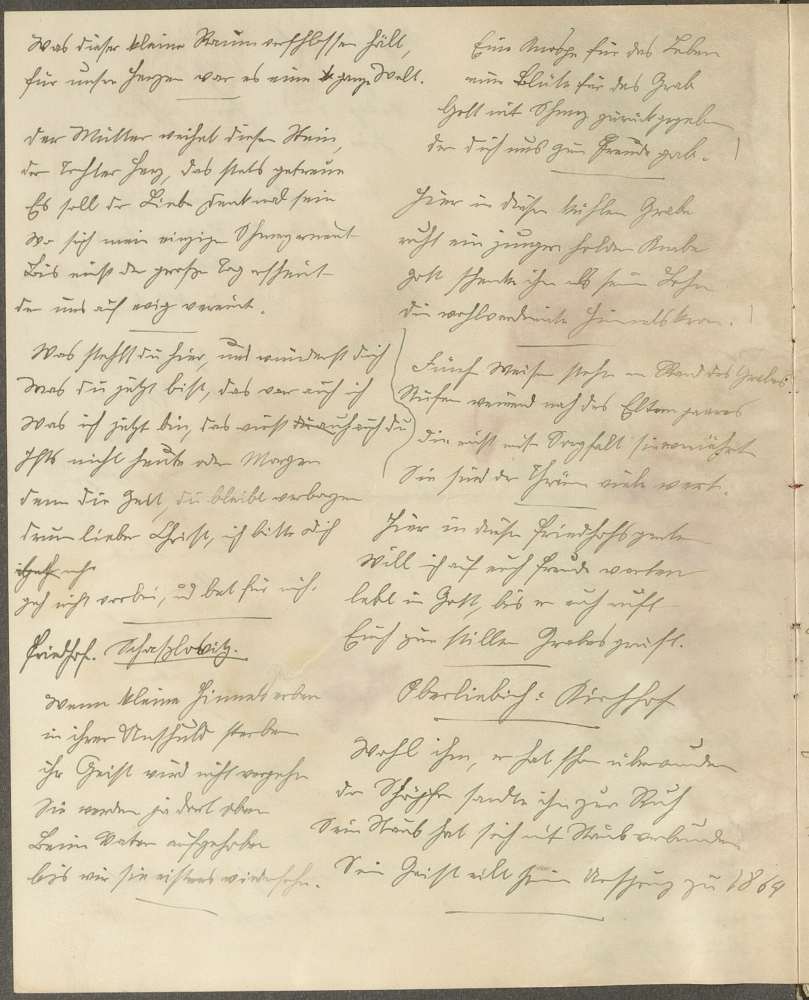 Was dieser kleine Raum verschlossen hält,
für unsre Herzen war es eine ganze Welt.
Der Mutter weihet diesen Stein,
der Tochter Herz, das stets getreue
Es soll der Liebe Denkmal sein
Wo sich mein einziger Schmerz erneut
Bis einst der große Tag erscheint
der uns auf ewig vereint.
Was stehst du hier, und wunderst dich
Was du jetzt bist, das war auch ich
Was ich jetzt bin, das wirst auch du
Ists nicht heute oder Morgen
denn die Zeit, die bleibt verborgen
drum lieber Christ, ich bitte dich
geh nicht vorbei, und bet für mich.
Friedhof. Schaßlowitz.
Wenn kleine Himmelserben
in ihrer Unschuld sterben
ihr Geist wird nicht vergehn
Sie werden ja dort oben
Beim Vater aufgehoben
bis wir sie einstens wiedersehn.
Eine Knospe für das Leben
eine Blüte für das Grab
Gott mit Schmerz zurückgegeben
der dich uns zur Freude gab.
Hier in diesem kühlen Grabe
ruht ein junger holder Knabe
Gott schenke ihm als sein Lohn
die wohlverdiente Himmelskron.
Fünf Weisen stehn am Rand des Grabes
Rufen weinend nach des Elternpaares
Die einst mit Sorgfalt sie ernährt
Sie sind der Thränen viele wert.
Hier in diesem Friedhofsgarten
Will ich auf euch Freunde warten
lebt in Gott, bis er euch ruft
Euch zur stillen Grabesgruft.
Oberliebich: Kirchhof
Wohl ihm, er hat schon überwunden
der Schöpfer sandte ihn zur Ruh
Sein Staub hat sich mit Staub verbunden
Sein Geist eilt seinem Ursprung zu 1864